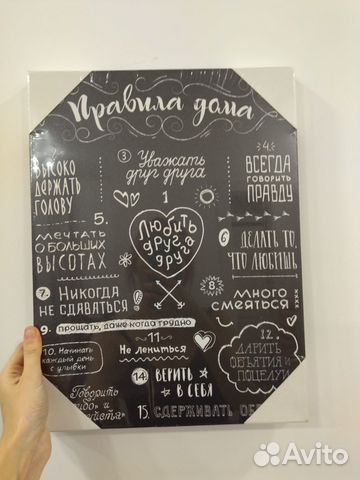 Правила дома
ВЫСОКО
ДЕРЖАТЬ
ГОЛОВУ
3 Уважать
друг друга
4.
ВСЕГДА
ГОВОРИТЬ
ПРАВДУ
1
ЛЮБИТЬ
друг
друга
5.
МЕЧТАТЬ
О БОЛЬШИХ
ВЫСОТАХ
6 ДЕЛАТЬ ТО,
ЧТО ЛЮБИШЬ
7. НИКОГДА
НЕ СДАВАТЬСЯ!
8.
МНОГО
СМЕЯТЬСЯ
9. прощать, даже когда трудно
10. Начинать
каждый день
с улыбки
11
Не лениться
12.
ДАРИТЬ
ОБЪЯТИЯ И
ПОЦЕЛУИ
Говорить
и
14. ВЕРИТЬ
В СЕБЯ
15. СДЕРЖИВАТЬ
Avito